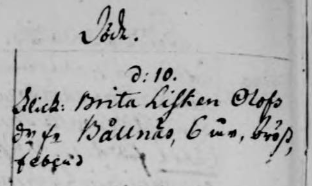 Död.
d: 10.
Flick: Brita Lisken Olofs
dr fr Bållnäs, 6 uv, bröst